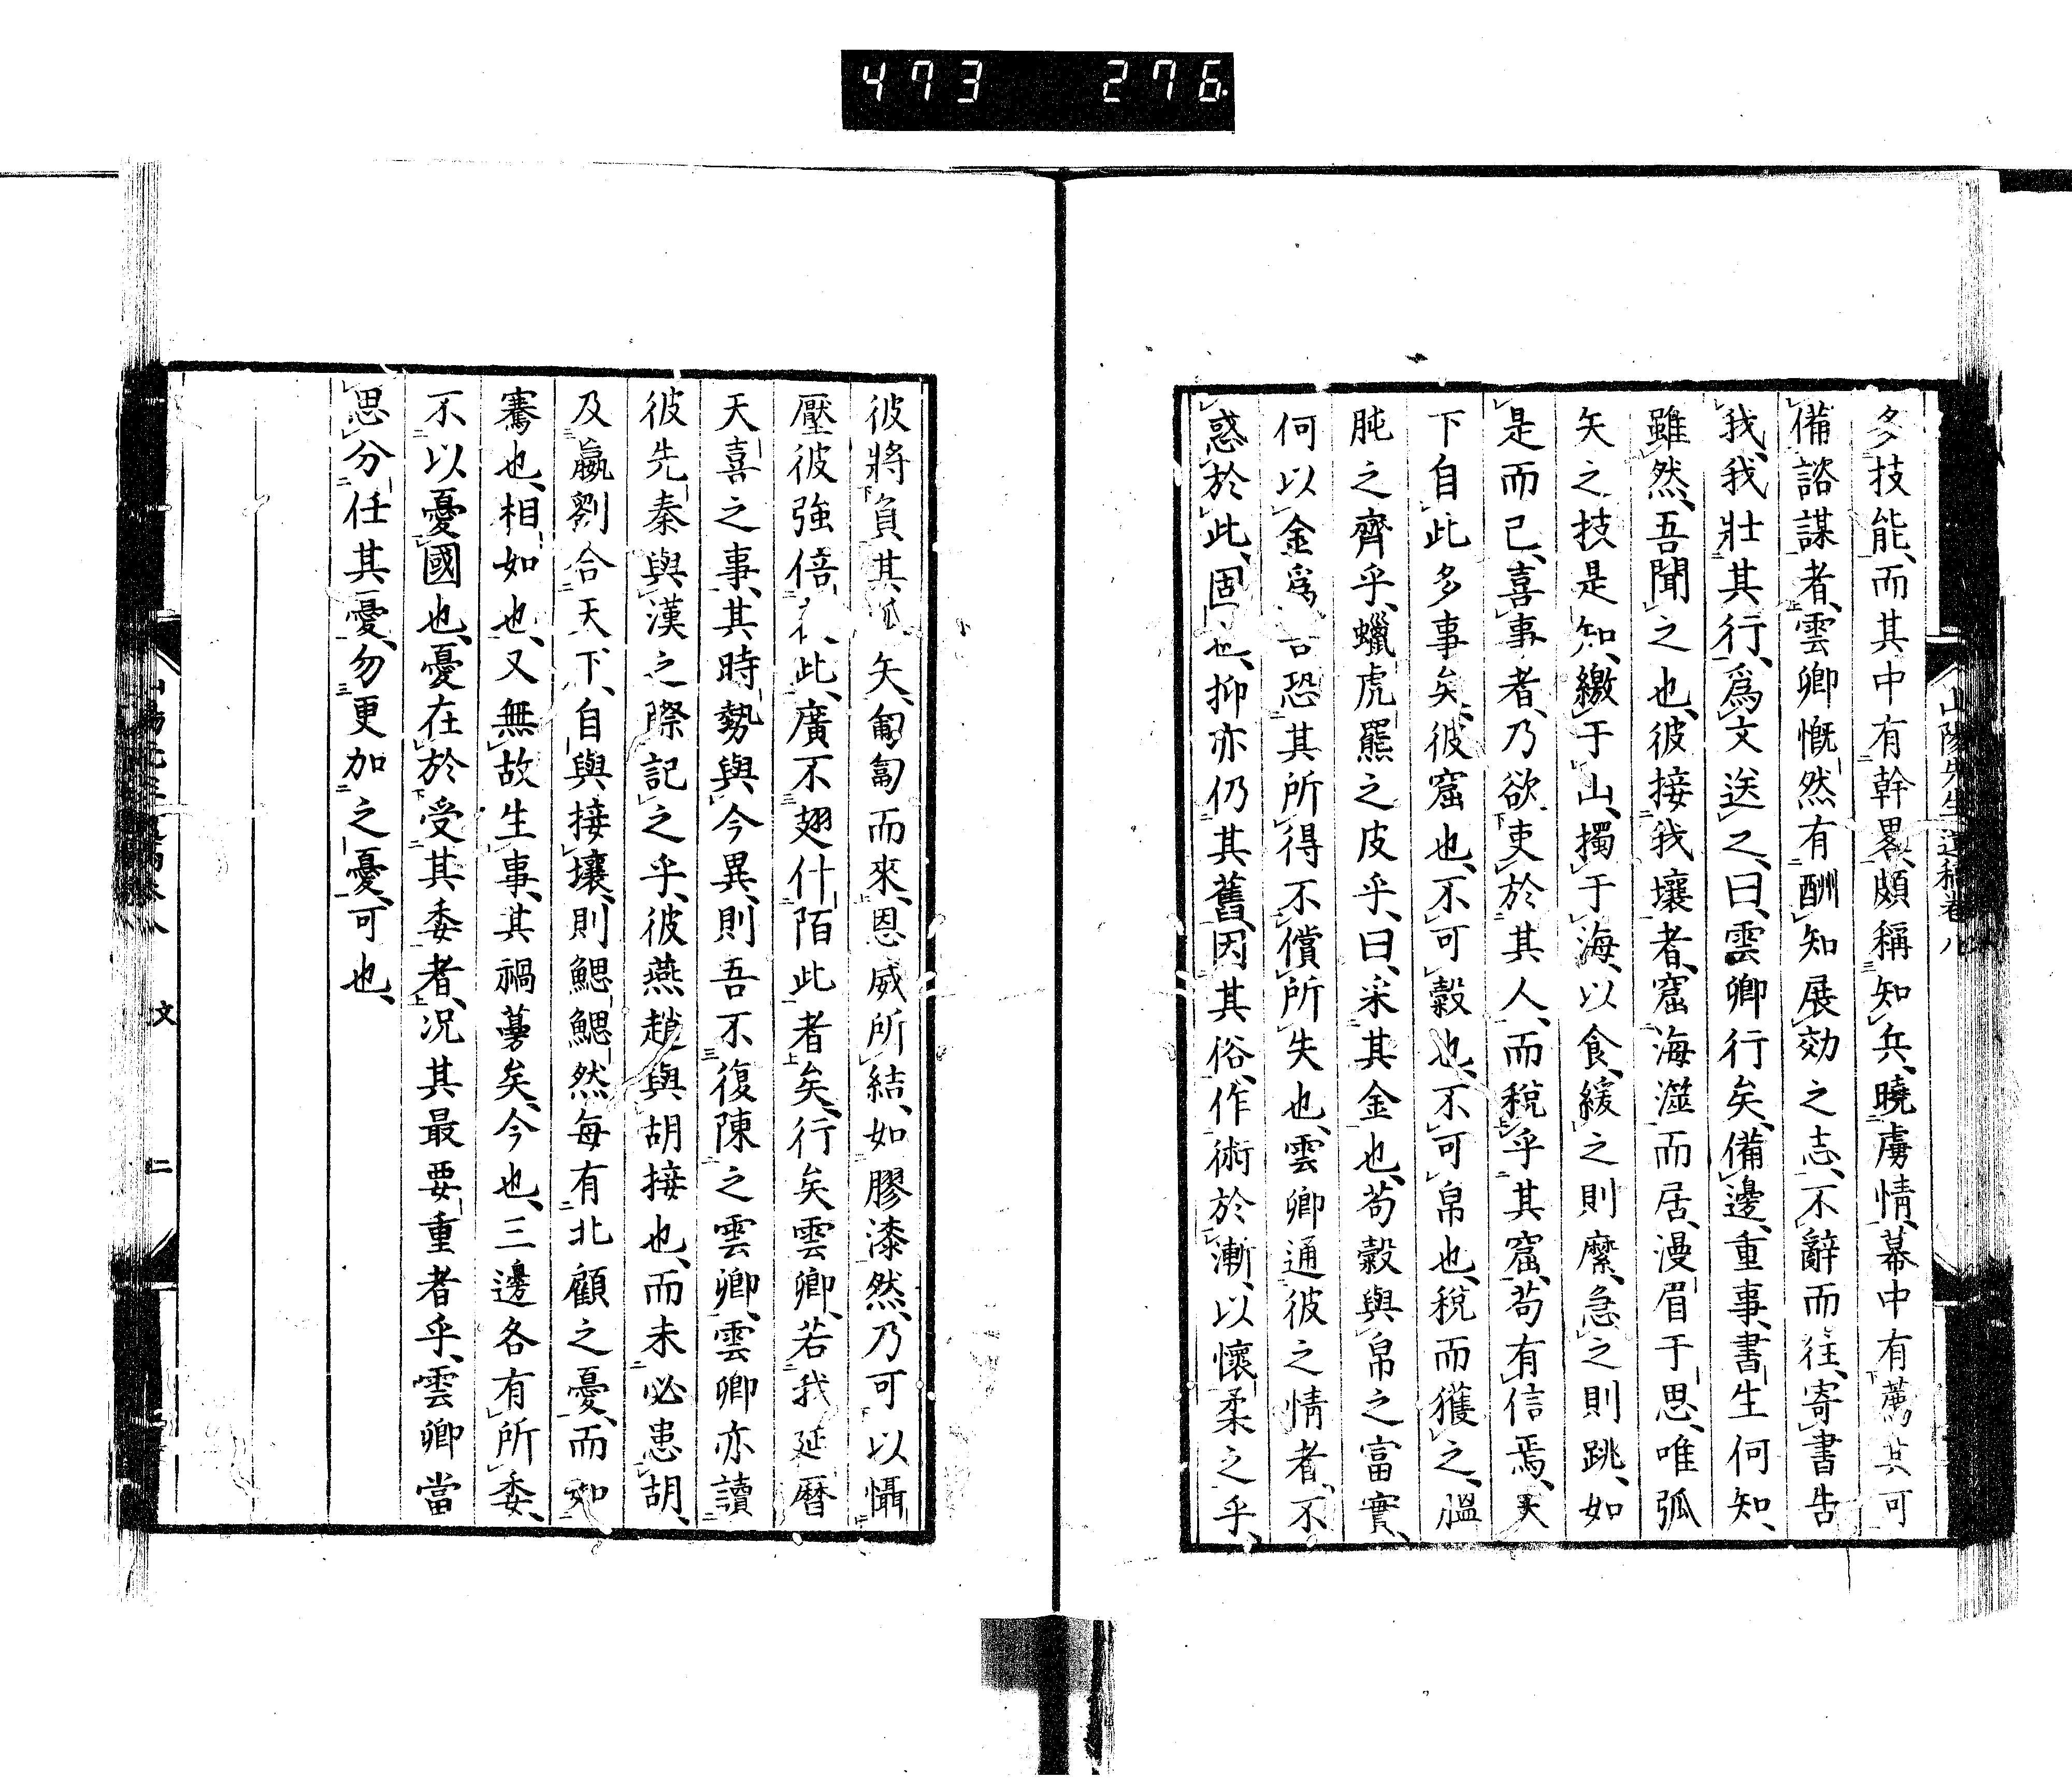 473 276
山陽先生遺稿卷八
多技能、而其中有幹畧、頗稱知兵、曉虜情、幕中有薦其可
備諮謀者、雲卿慨然有酬知展効之志、不辭而往、寄書告
我、我壯其行、爲文送之、曰、雲卿行矣、備邊、重事、書生何知、
雖然、吾聞之也、彼接我壤者、窟海澨而居、漫眉于思、唯弧
矢之技是知、繳于山、擉于海、以食、緩之則縻、急之則跳、如
是而已、喜事者、乃欲吏於其人、而稅乎其窟、苟有信焉、天
下自此多事矣、彼窟也、不可縠也、不可帛也、稅而獲之、膃
肭之齊乎、蠟虎羆之皮乎、曰、采其金也、苟縠與帛之富實、
何以金爲、吾恐其所得不償所失也、雲卿通彼之情者、不
惑於此、固也、抑亦仍其舊、因其俗、作術於漸、以懷柔之乎、
彼將負其弧矢、匍匐而來、恩威所結、如膠漆然、乃可以懾
壓彼強倍此、廣不翅什陌此者矣、行矣雲卿、若我延曆
天喜之事、其時勢與今異、則吾不復陳之雲卿、雲卿亦讀
彼先秦與漢之際記之乎、彼燕趙與胡接也、而未必患胡、
及嬴劉合天下、自與接壤、則鰓鰓然每有北顧之憂、而如
騫也、相如也、又無故生事、其禍蔓矣、今也、三邊各有所委、
不以憂國也、憂在於受其委者、況其最要重者乎、雲卿當
思分任其憂、勿更加之憂、可也、
文 二